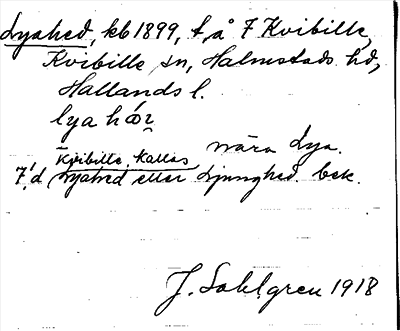 Lyahed, kb 1899, t, å 7 Kvibille,
Kvibille sn, Halmstads hd,
Hallands l.
lya hǽr
nära Lya.
Kvibille kallas
7, d Lyahed eller Ljunghed. bek.
J. Sahlgren 1918